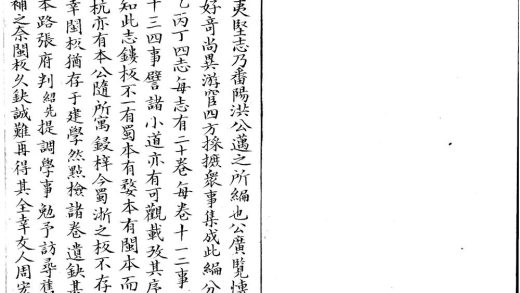 夷堅志乃番陽洪公邁之所編也公廣覽慱
好竒尚異游宦四方採摭衆事集成此編分
乙丙丁四志每志有二十卷每卷十一二事
十三四事譬諸小道亦有可觀載攷其序
知此志鏤板不一有蜀本有婺本有閩本而
杭亦有本公隨所寓鋟梓今蜀浙之板不存
幸閩板猶存于建學然點檢諸卷遺缺甚
本路張府判紹先提調學事勉予訪尋舊
補之奈閩板久缺誠難再得其全幸友人周宏